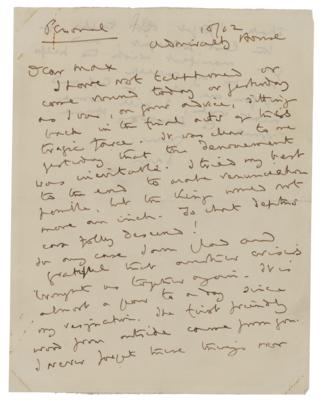 Personal
10/12
Admiralty House
Dear Max
I have not telephoned or
come round today or yesterday
as I was, on your advice, sitting
back in the final acts of this
tragic farce. It was clear to me
yesterday that the denouement
was inevitable. I tried my best
to the end to make renunciation
possible, but the King would not
move an inch. To what depths
can folly descend!
In any case I am glad and
grateful that another crisis
brought us together again. It is
almost a year to a day since
my resignation. The first friendly
word from outside came from you.
I never forget these things nor